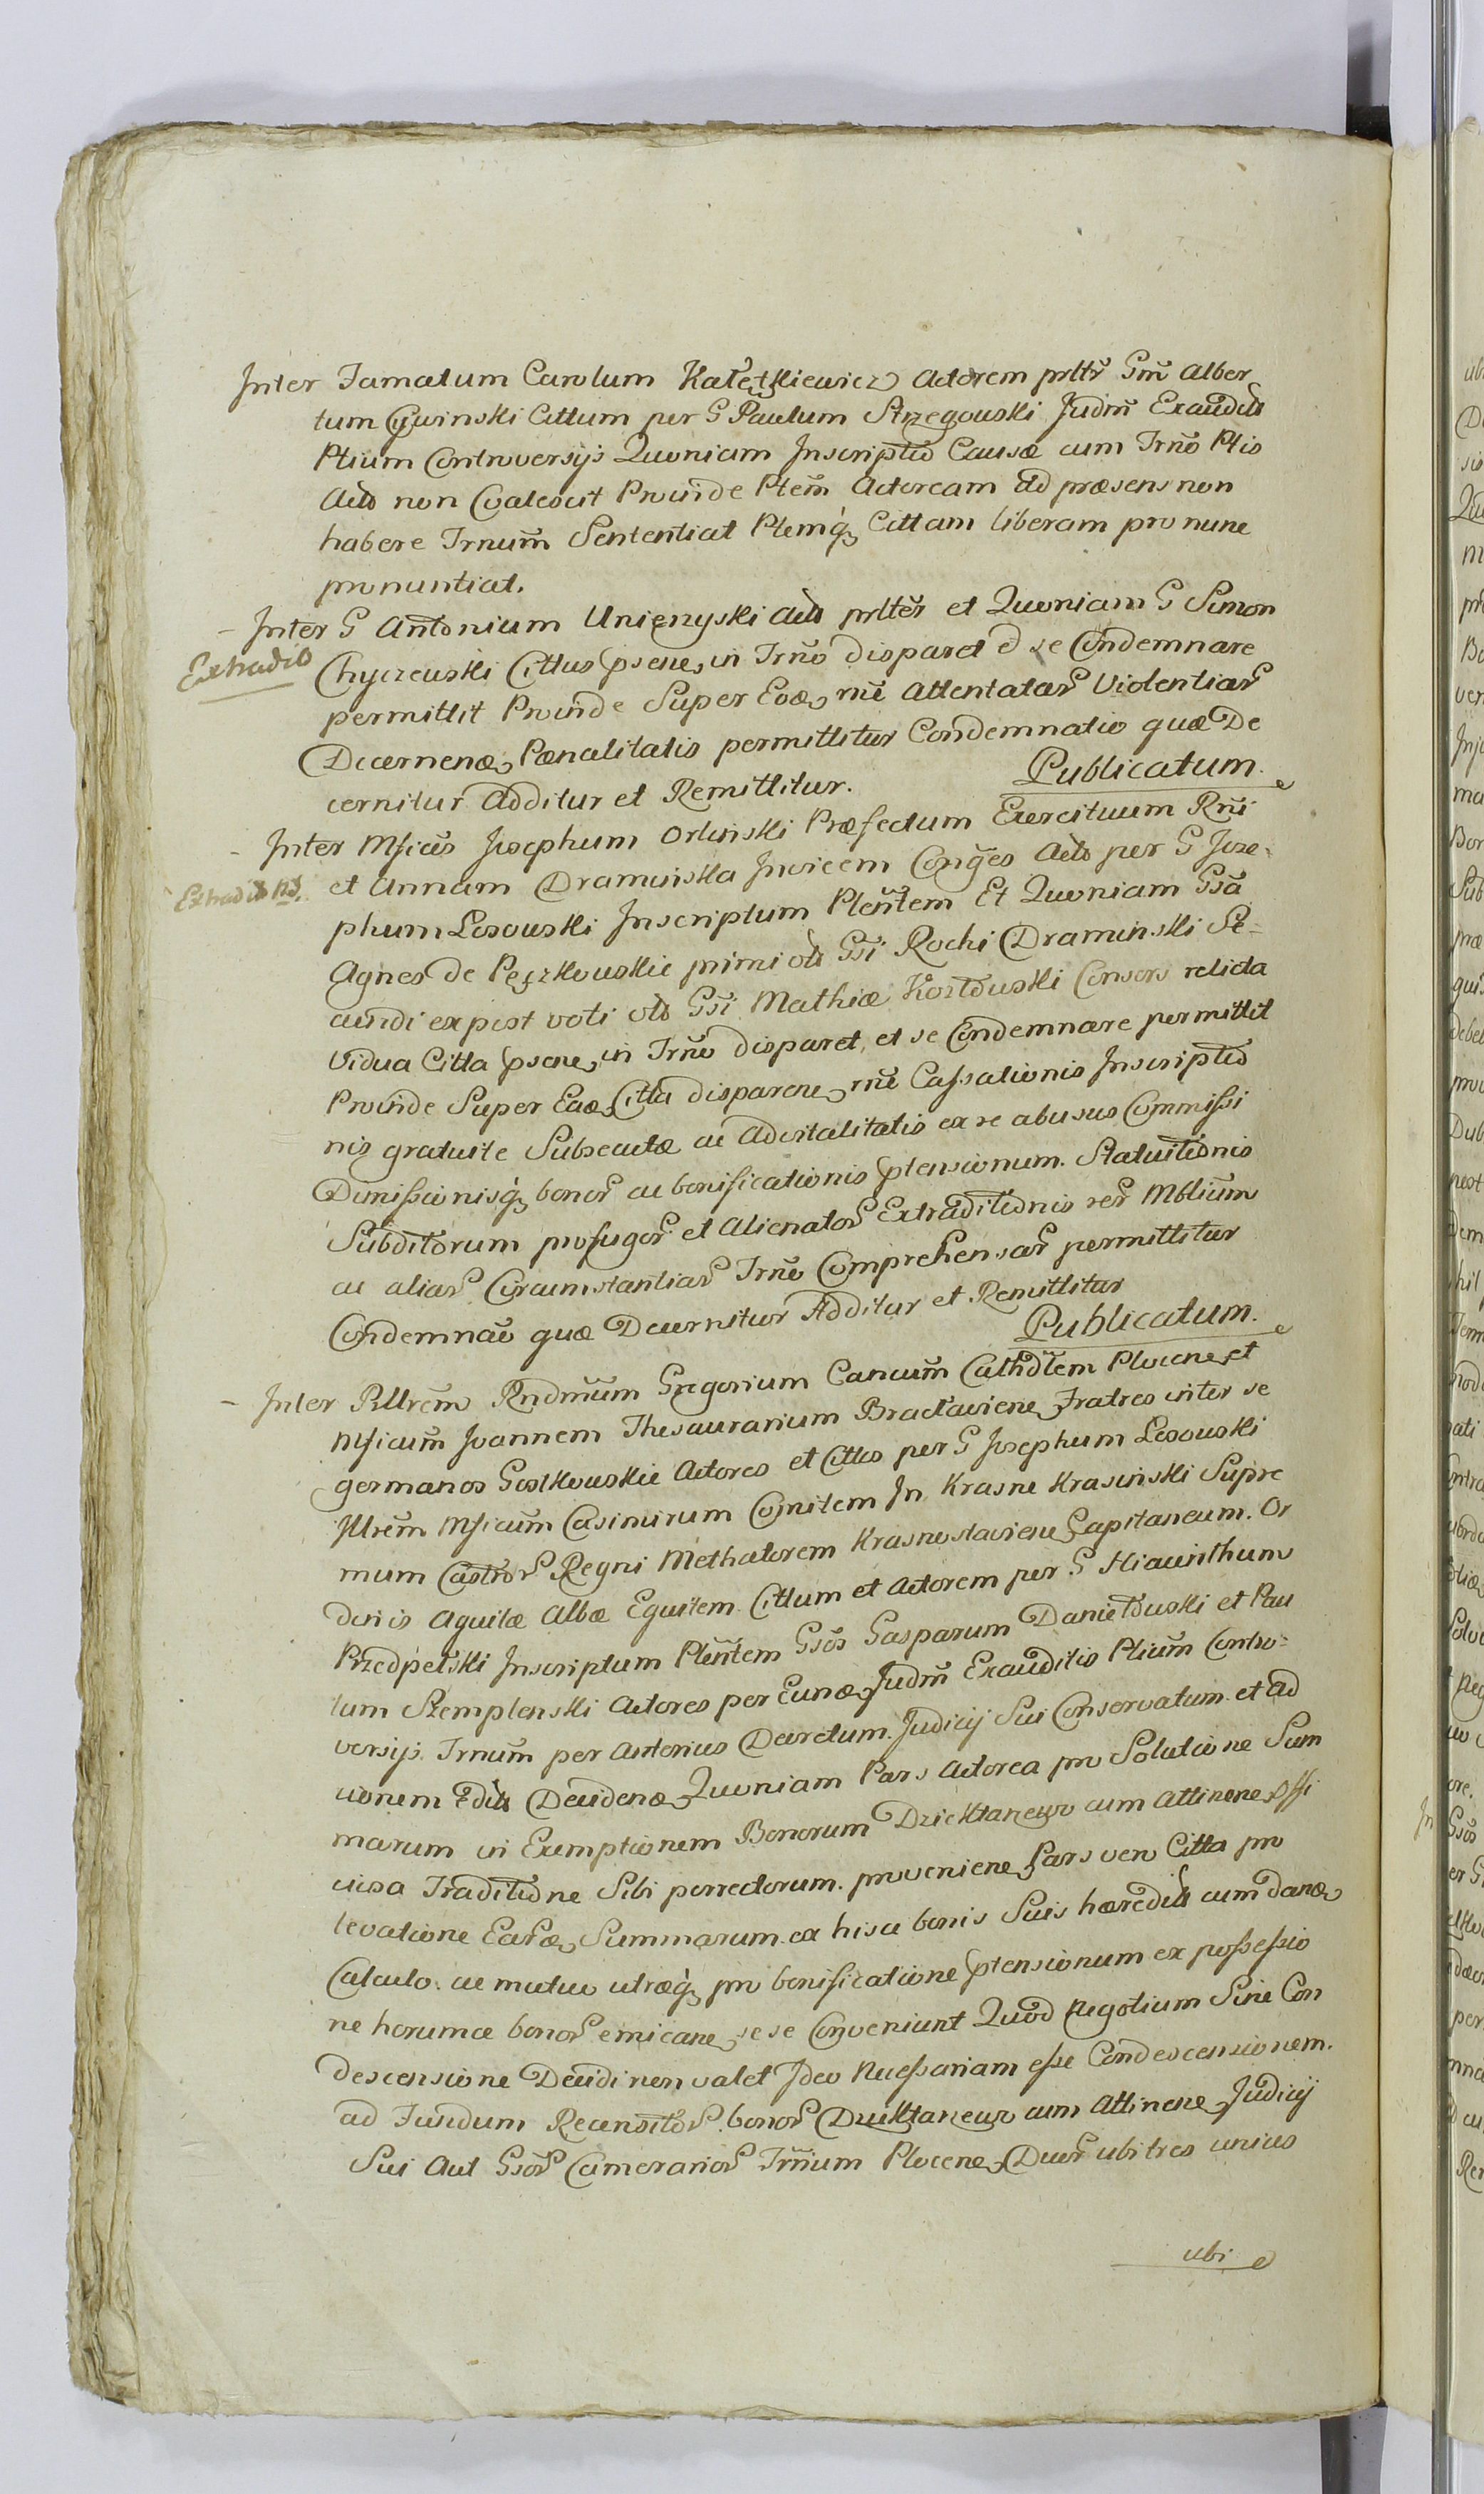 Inter Famatum Carolum Kałęćkiewicz Actorem prltr Gm̃ Alber
tum Cywinski Cittum per G Paulum Strzegowski Judm̃ Exauditis
Ptium Controversijs Quoniam Inscriptio Causæ cum Trñō Ptis
Actō non Coalescit Proinde Ptem̃ Actoream Ad præsens non
habere Trnum̃ Sententiat Ptemq̃ Cittam liberam pro nunc
pronuntiat.
– Inter G Antonium Unierzyski Actō prltẽr et Quoniam G Simon
Extraditō
Chyczewski Cittus psene, in Trñō disparet & se Condemnare
permittit Proinde Super Eoæ, rñe Attentatar̃ Violentiar̃
Decernenæ, Pœnalitatis permittitur Condemnatio quæ De
cernitur Additur et Remittitur. Publicatum.
– Inter Mficũs Josephum Orlinski Præfectum Exercituum Rñi
Extraditō ns.
et Annam Draminska Invicem Conges Actō per G Jose-
phum Losowski Inscriptum Plentem Et Quoniam Gsã
Agnes de Pęczkowskie primi oli Gsi Rochi Draminski Se-
cundi ex post voti oli Gsi Mathiæ Kozłowski Consors relicta
Vidua Citta psene, in Trñō disparet, et se Condemnare permittit
Proinde Super Eaæ, Citta disparene, rñe Cassationis Inscriptio
nis gratuite Subsecutæ ac Advitalitatis ex re abusus Commissi
Dimissionisq̃ bonor̃ ac bonificationis ptensionum. Statuitionis
Subditorum profugor̃ et Alienator̃ Extraditionis rer̃ Mblium̃
ac aliar̃ Circumstantiar̃ Trñō Comprehensar̃ permittitur
Condemnaõ quæ Decernitur Additur et Remittitur
Publicatum.
– Inter Plltrem̃ Rndmum̃ Gregorium Cancum̃ Cathdłem Plocene, et
Mficum̃ Joannem Thesaurarium Bracłaviene, Fratres inter se
germanos Gostkowskie Actores et Cittos per G Josephum Losowski
Jllrem̃ Mficum̃ Casimirum Comitem In Krasne Krasinski Supre
mum Castror̃ Regni Methatorem Krasnostaviene, Capitaneum. Or
dinis Aquilæ Albæ Equitem Cittum et Actorem per G Hiacinthum
Przedpełski Inscriptum Plentem Gsõs Gasparum Daniełowski et Pau
lum Szemplenski Actores per Eunæ, Judm̃ Exauditis Ptium̃ Contro-
versijs Trnum̃ per Anterius Decretum. Judicij Sui Conservatum. et ad
cionem Editō Decidenæ, Quoniam Pars Actorea pro Solutione Sum
marum in Exemptionem Bonorum Dziektarzewo cum Attinene, Offi
ciosa Traditione Sibi porrectorum. proveniene, Pars vero Citta pro
levatione Earæ, Summarum. ex hisce bonis Suis hæreditō cum danæ,
Calculo. ac mutuo utraq̃ pro bonificatione ptensionum ex possessio
ne horumce bonor̃ emicane, sese Conveniunt Quod Negotium Sine Con
descensione Decidi non valet Ideo Necessariam esse Condescensionem.
ad Fundum Recensitor̃. bonor̃ Dziektarzewo cum Attinene, Judicij
Sui Aut Gsõr̃ Camerarior̃ Trñium Plocene, Duor̃ ubi tres unius
ubi